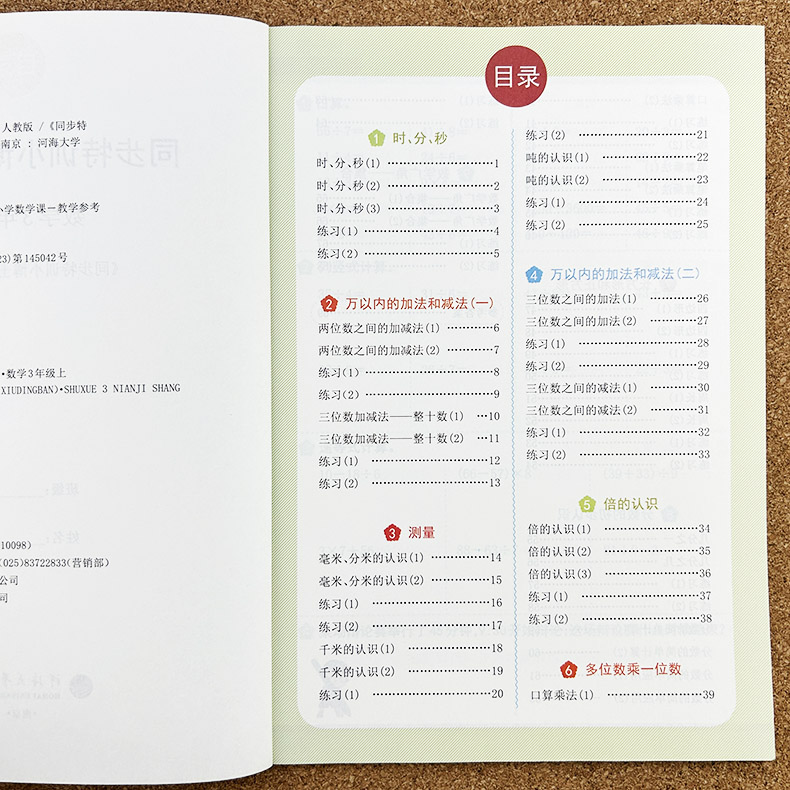 人教版 /《同步特
南京 : 河海大学
小学数学课－教学参考
23)第145042号
·数学3年级上
XIUDINGBAN)·SHUXUE 3 NIANJI SHANG
10098)
(025)83722833(营销部)
公司
司
目录
1 时、分、秒
时、分、秒(1) ………………1
时、分、秒(2) ………………2
时、分、秒(3) ………………3
练习(1) ………………4
练习(2) ………………5
2 万以内的加法和减法(一)
两位数之间的加减法(1) …………6
两位数之间的加减法(2) …………7
练习(1) ………………8
练习(2) ………………9
三位数加减法——整十数(1) …10
三位数加减法——整十数(2) …11
练习(1) ………………12
练习(2) ………………13
3 测量
毫米、分米的认识(1) …………14
毫米、分米的认识(2) …………15
练习(1) ………………16
练习(2) ………………17
千米的认识(1) ………………18
千米的认识(2) ………………19
练习(1) ………………20
练习(2) ………………21
吨的认识(1) ………………22
吨的认识(2) ………………23
练习(1) ………………24
练习(2) ………………25
4 万以内的加法和减法(二)
三位数之间的加法(1) …………26
三位数之间的加法(2) …………27
练习(1) ………………28
练习(2) ………………29
三位数之间的减法(1) …………30
三位数之间的减法(2) …………31
练习(1) ………………32
练习(2) ………………33
5 倍的认识
倍的认识(1) ………………34
倍的认识(2) ………………35
倍的认识(3) ………………36
练习(1) ………………37
练习(2) ………………38
6 多位数乘一位数
口算乘法(1) ………………39